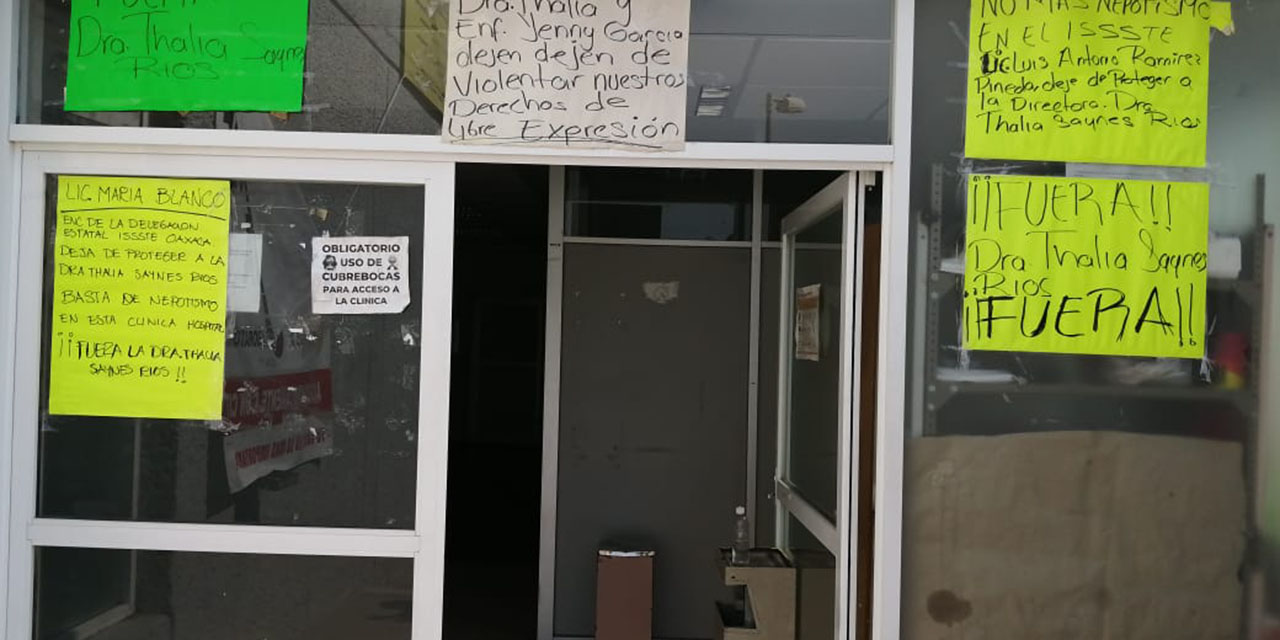 FUERA
Dra. Thalia Saynes
Rios
Dra. Thalia y
Enf. Jenny Garcia
dejen dejen de
Violentar nuestros
Derechos de
Libre Expresión
NO MAS NEPOTISMO
EN EL ISSSTE
Lic Luis Antonio Ramirez
Pineda, deje de Proteger a
la Directora. Dra.
Thalia Saynes Rios
LIC. MARIA BLANCO
ENC DE LA DELEGACION
ESTATAL ISSSTE OAXACA
DEJA DE PROTEGER A LA
DRA THALIA SAYNES RIOS
BASTA DE NEPOTISMO
EN ESTA CLINICA HOSPITAL
¡¡FUERA LA DRA. THALIA
SAYNES RIOS!!
OBLIGATORIO
USO DE
CUBREBOCAS
PARA ACCESO A
LA CLINICA
¡¡FUERA!!
Dra. Thalia Saynes
Rios
¡¡FUERA!!